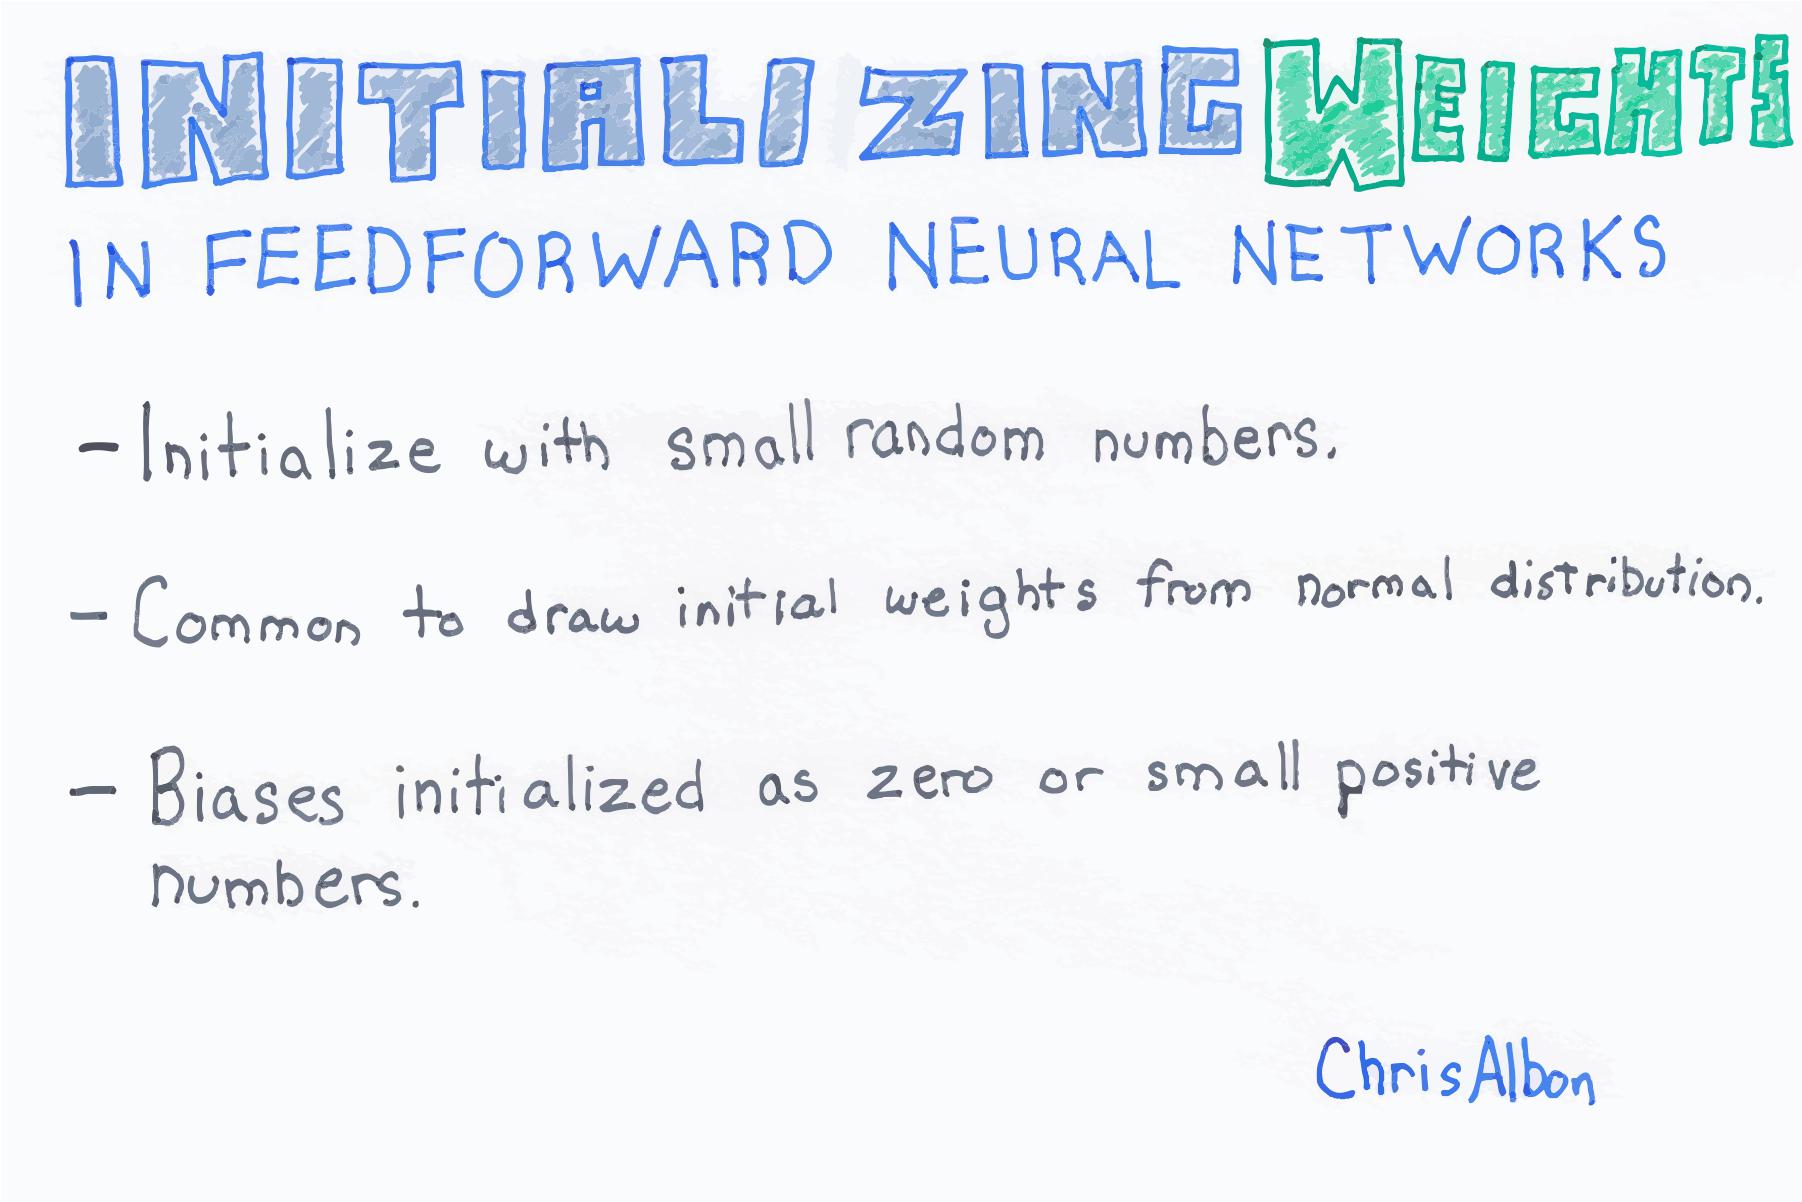 INITIALIZING WEIGHTS
IN FEEDFORWARD NEURAL NETWORKS
- Initialize with small random numbers.
- Common to draw initial weights from normal distribution.
- Biases initialized as zero or small positive
numbers.
ChrisAlbon